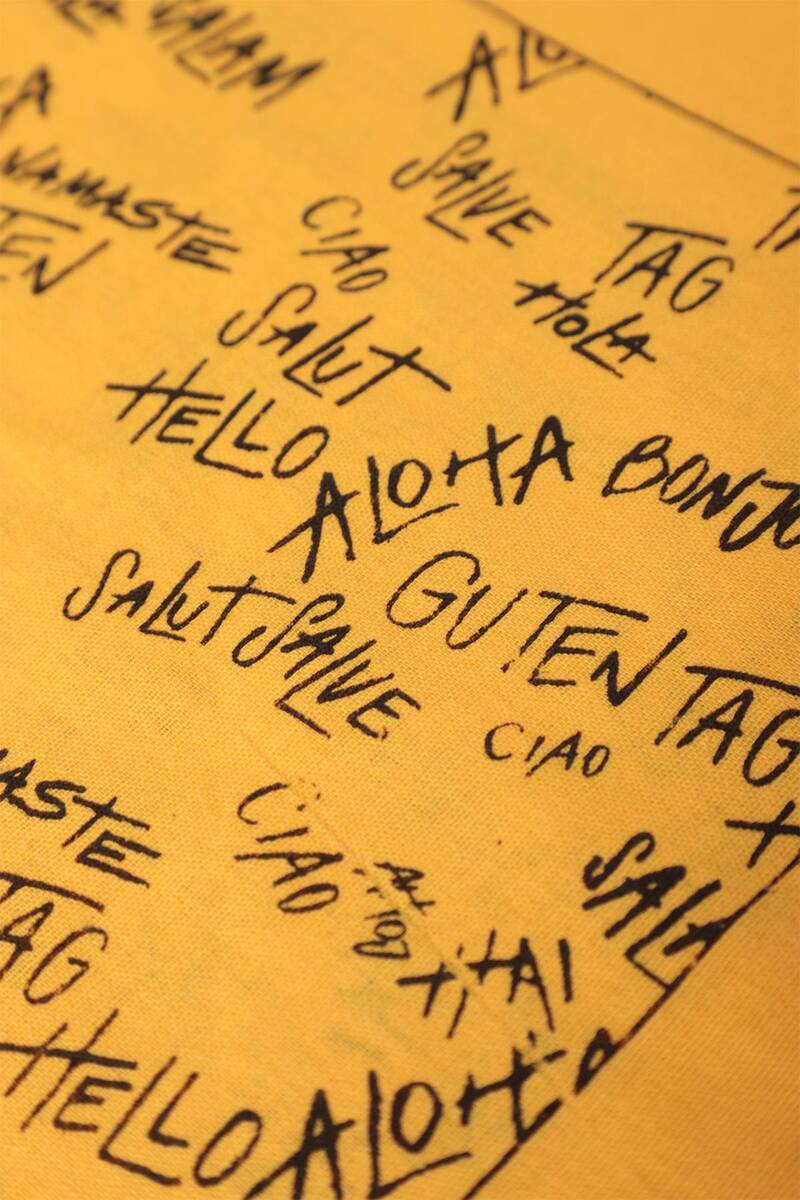 SALAM
ALO
SALVE
NAMASTE
CIAO
TAG
TEN
HOLA
SALUT
HELLO
ALOHA
BONJO
GUTEN TAG
SALUT
SALVE
CIAO
ASTE
CIAO
SALA
TAG
HAI
HELLO
ALOHA